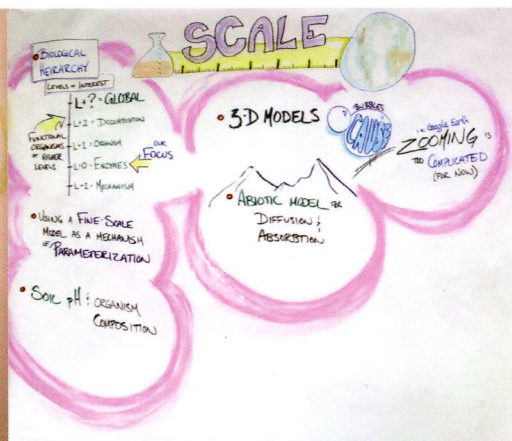 SCALE
• BIOLOGICAL
HEIRARCHY
LEVELS OF INTEREST
L+? = GLOBAL
L+2 = DECOMPOSITION
L+1 = ORGANISM
L=0 = ENZYMES
L-1 = MECHANISM
FUNCTIONAL
ORGANISMS
HIGHER
LEVELS
OUR
FOCUS
• USING A FINE-SCALE
MODEL AS A MECHANISM
OF PARAMETERIZATION
• SOIL pH & ORGANISM
COMPOSITION
• 3-D MODELS
• ABIOTIC MODEL FOR
DIFFUSION &
ABSORBTION
BUBBLES
CAUSE
in Google Earth
ZOOMING IS
TOO COMPLICATED
(FOR NOW)